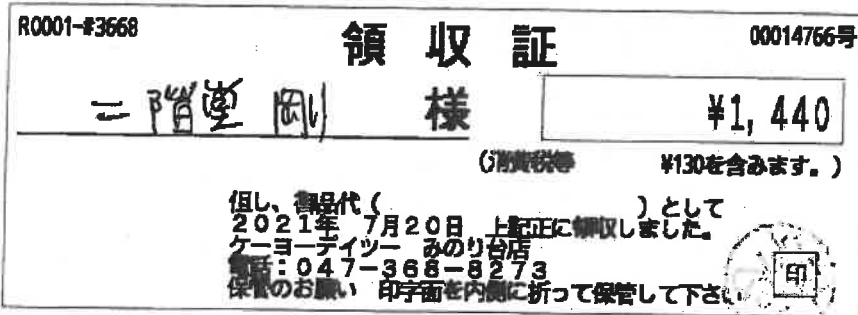 R0001-#3668
領収証
00014766号
二階堂 剛 様
¥1,440
(消費税等 ¥130を含みます。)
但し、御品代( )として
2021年 7月20日 上記正に領収しました。
ケーヨーデイツー みのり台店
電話:047-368-8273
保管のお願い 印字面を内側に折って保管して下さい
印